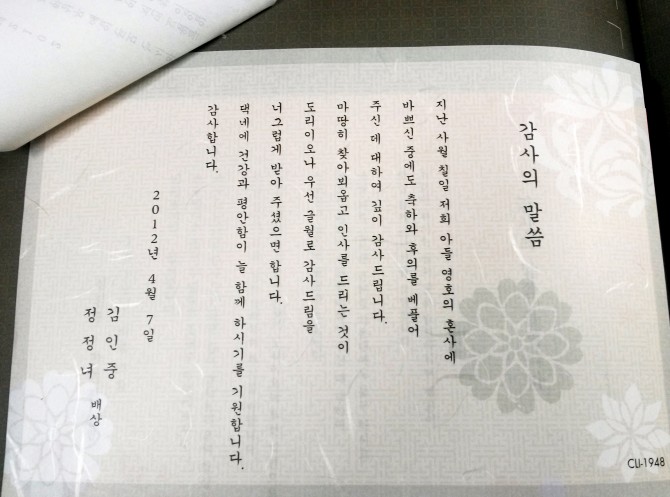 감사의 말씀
지난 사월 칠일 저희 아들 영호의 혼사에
바쁘신 중에도 축하와 후의를 베풀어
주신 데 대하여 깊이 감사드립니다.
마땅히 찾아뵈옵고 인사를 드리는 것이
도리이오나 우선 글월로 감사드림을
너그럽게 받아 주셨으면 합니다.
댁네에 건강과 평안함이 늘 함께 하시기를 기원합니다.
감사합니다.
2012년 4월 7일
김인중
정정녀 배상
CLI-1948